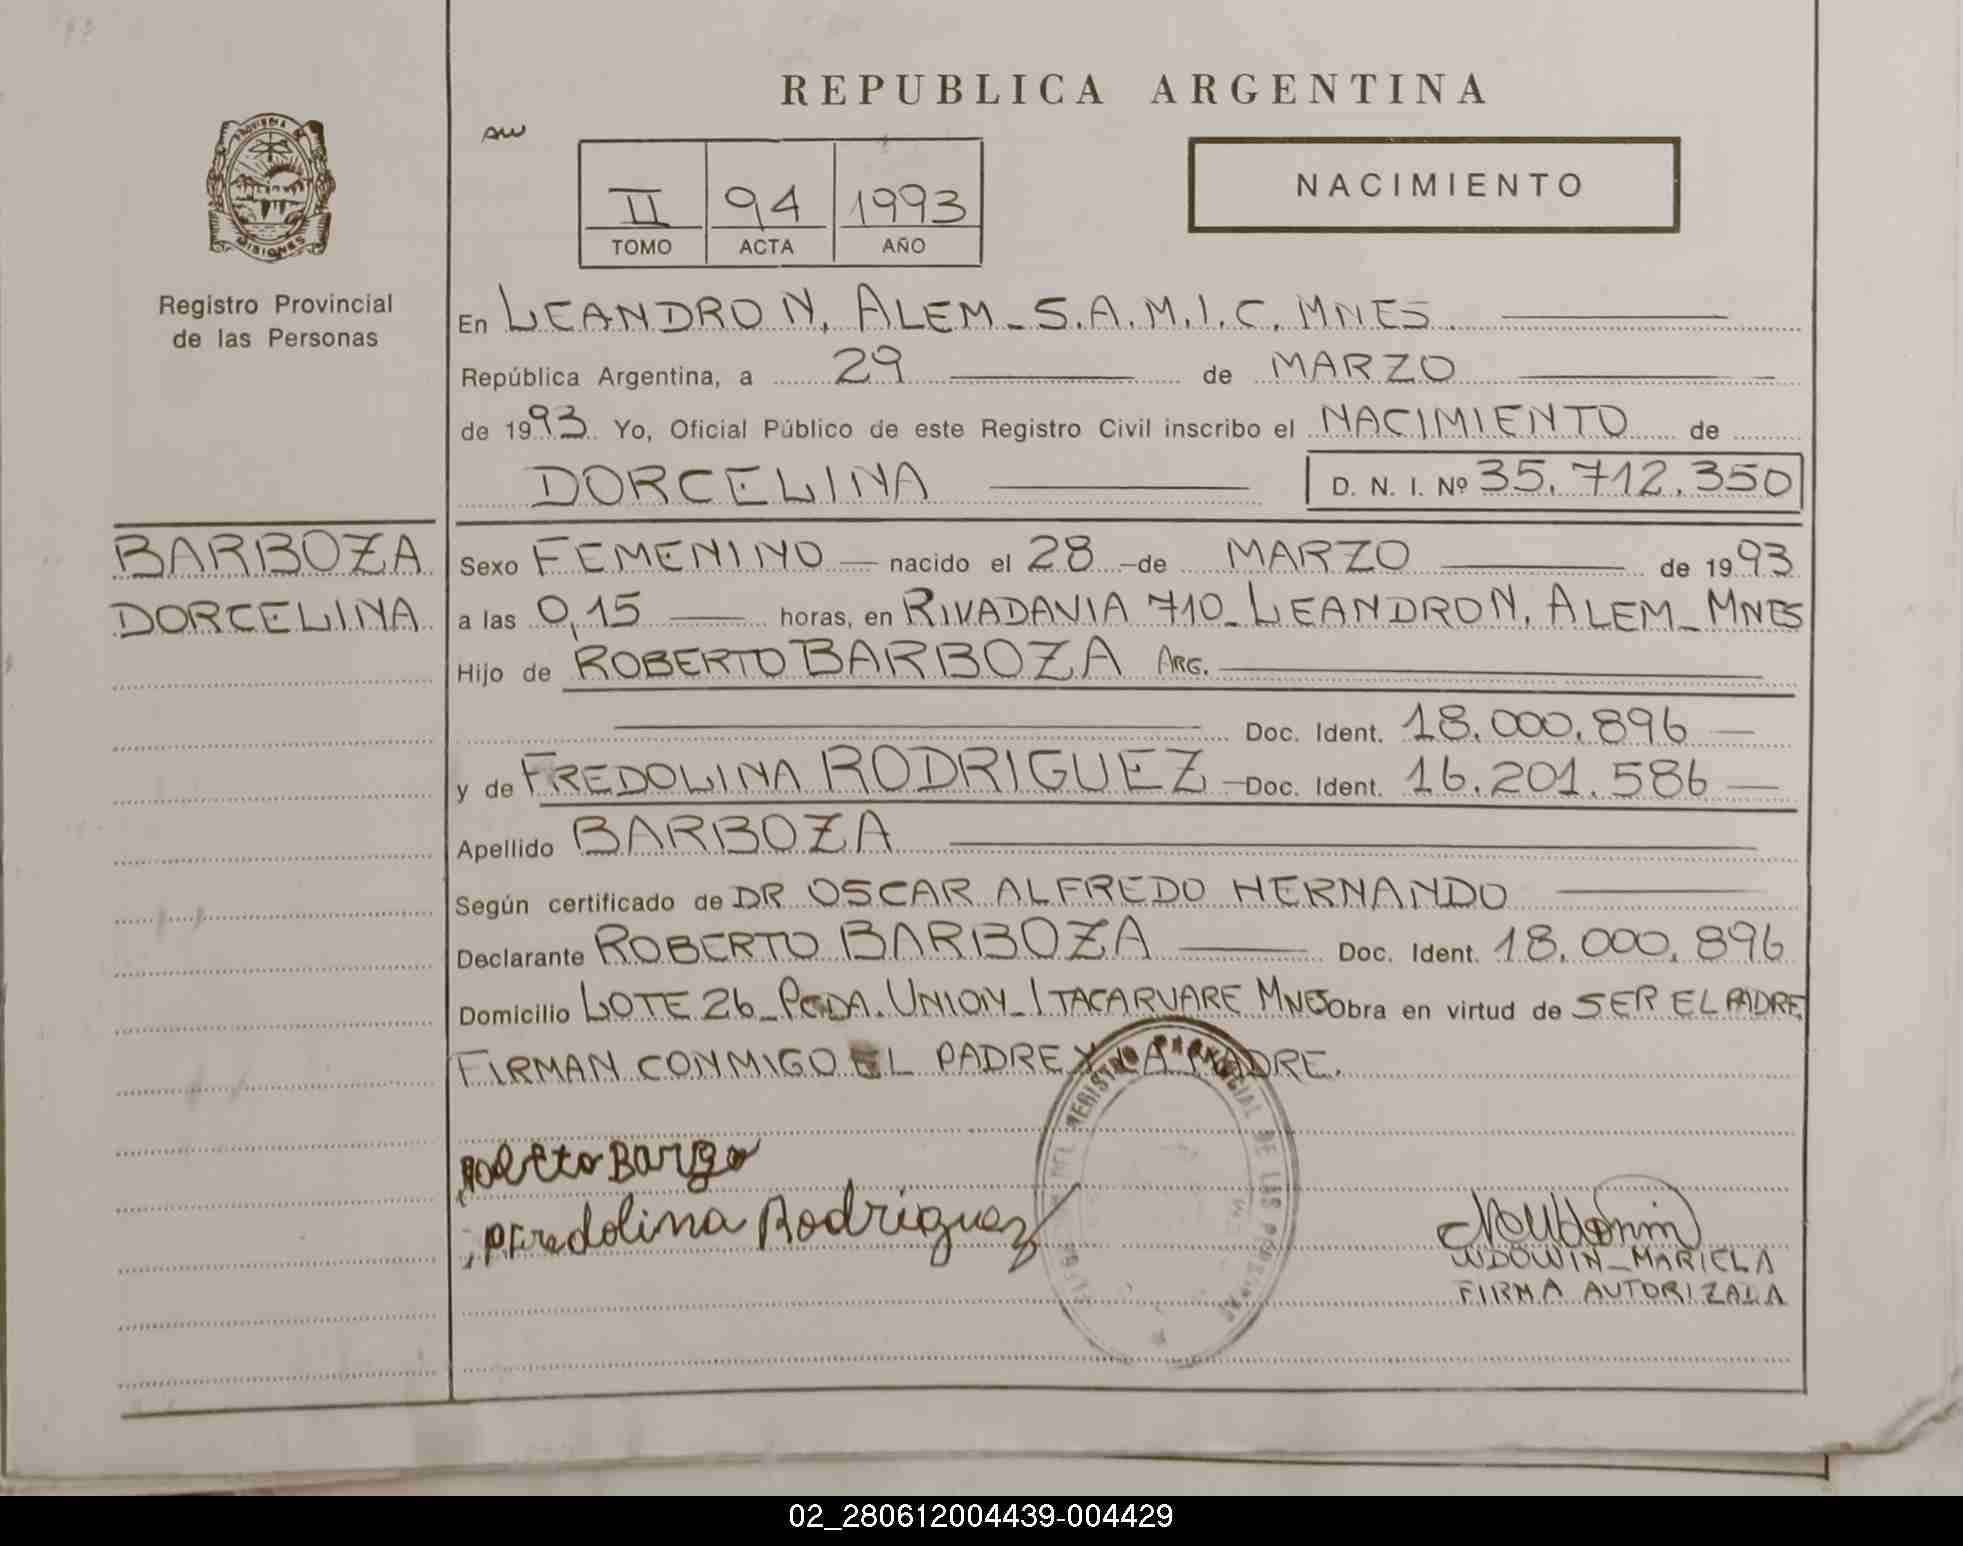 REPUBLICA ARGENTINA
NACIMIENTO
II 94 1993
TOMO ACTA AÑO
PROVINCIA DE
MISIONES
Registro Provincial
de las Personas
En LEANDRO N. ALEM - S.A.M.I.C. MNES
República Argentina, a 29 de MARZO
de 1993 Yo, Oficial Público de este Registro Civil inscribo el NACIMIENTO de
DORCELINA D. N. I. Nº 35.712.350
BARBOZA
DORCELINA
Sexo FEMENINO nacido el 28 de MARZO de 1993
a las 0,15 horas, en RIVADAVIA 710 - LEANDRO N. ALEM - MNES
Hijo de ROBERTO BARBOZA ARG.
Doc. Ident. 18.000.896
y de FREDOLINA RODRIGUEZ Doc. Ident. 16.201.586
Apellido BARBOZA
Según certificado de DR OSCAR ALFREDO HERNANDO
Declarante ROBERTO BARBOZA Doc. Ident. 18.000.896
Domicilio LOTE 26 - PCDA. UNION - ITACARUARE MNES Obra en virtud de SER EL PADRE
FIRMAN CONMIGO EL PADRE Y LA MADRE.
Fredolina Rodriguez
WDOWIN - MARICLA
FIRMA AUTORIZADA
02_280612004439-004429